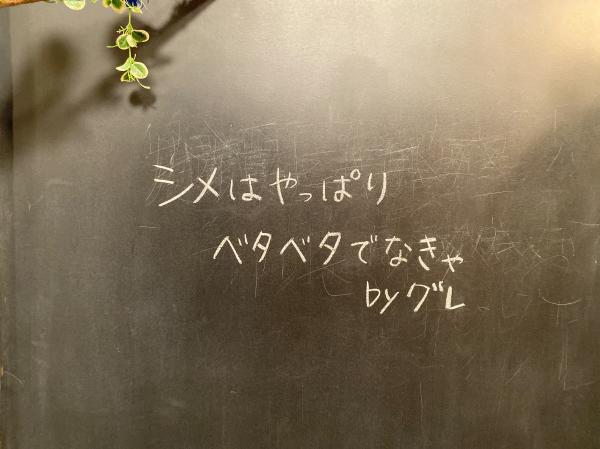 シメはやっぱり
ベタベタでなきゃ
byグレ